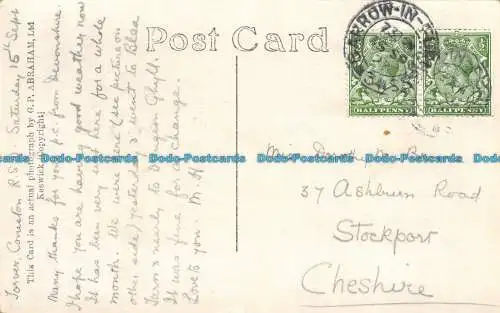 Post Card
This Card is an actual photograph by G. P. ABRAHAM, Ltd
Keswick. (copyright)
Torver, Coniston R.S.O. Saturday 15th Sept
Many thanks for your p.c. from Devonshire.
I hope you are having good weather now
It has been very wet here for a whole
month. We were here (see picture on
other side) yesterday & went to Blea
Tarn & nearly to Dungeon Ghyll.
It was fine for a change.
Love to you. M.H
BARROW-IN-
HALFPENNY
HALFPENNY
Miss
37 Ashburn Road
Stockport
Cheshire
Dood-Postcards
Dood-Postcards
Dood-Postcards
Dood-Postcards